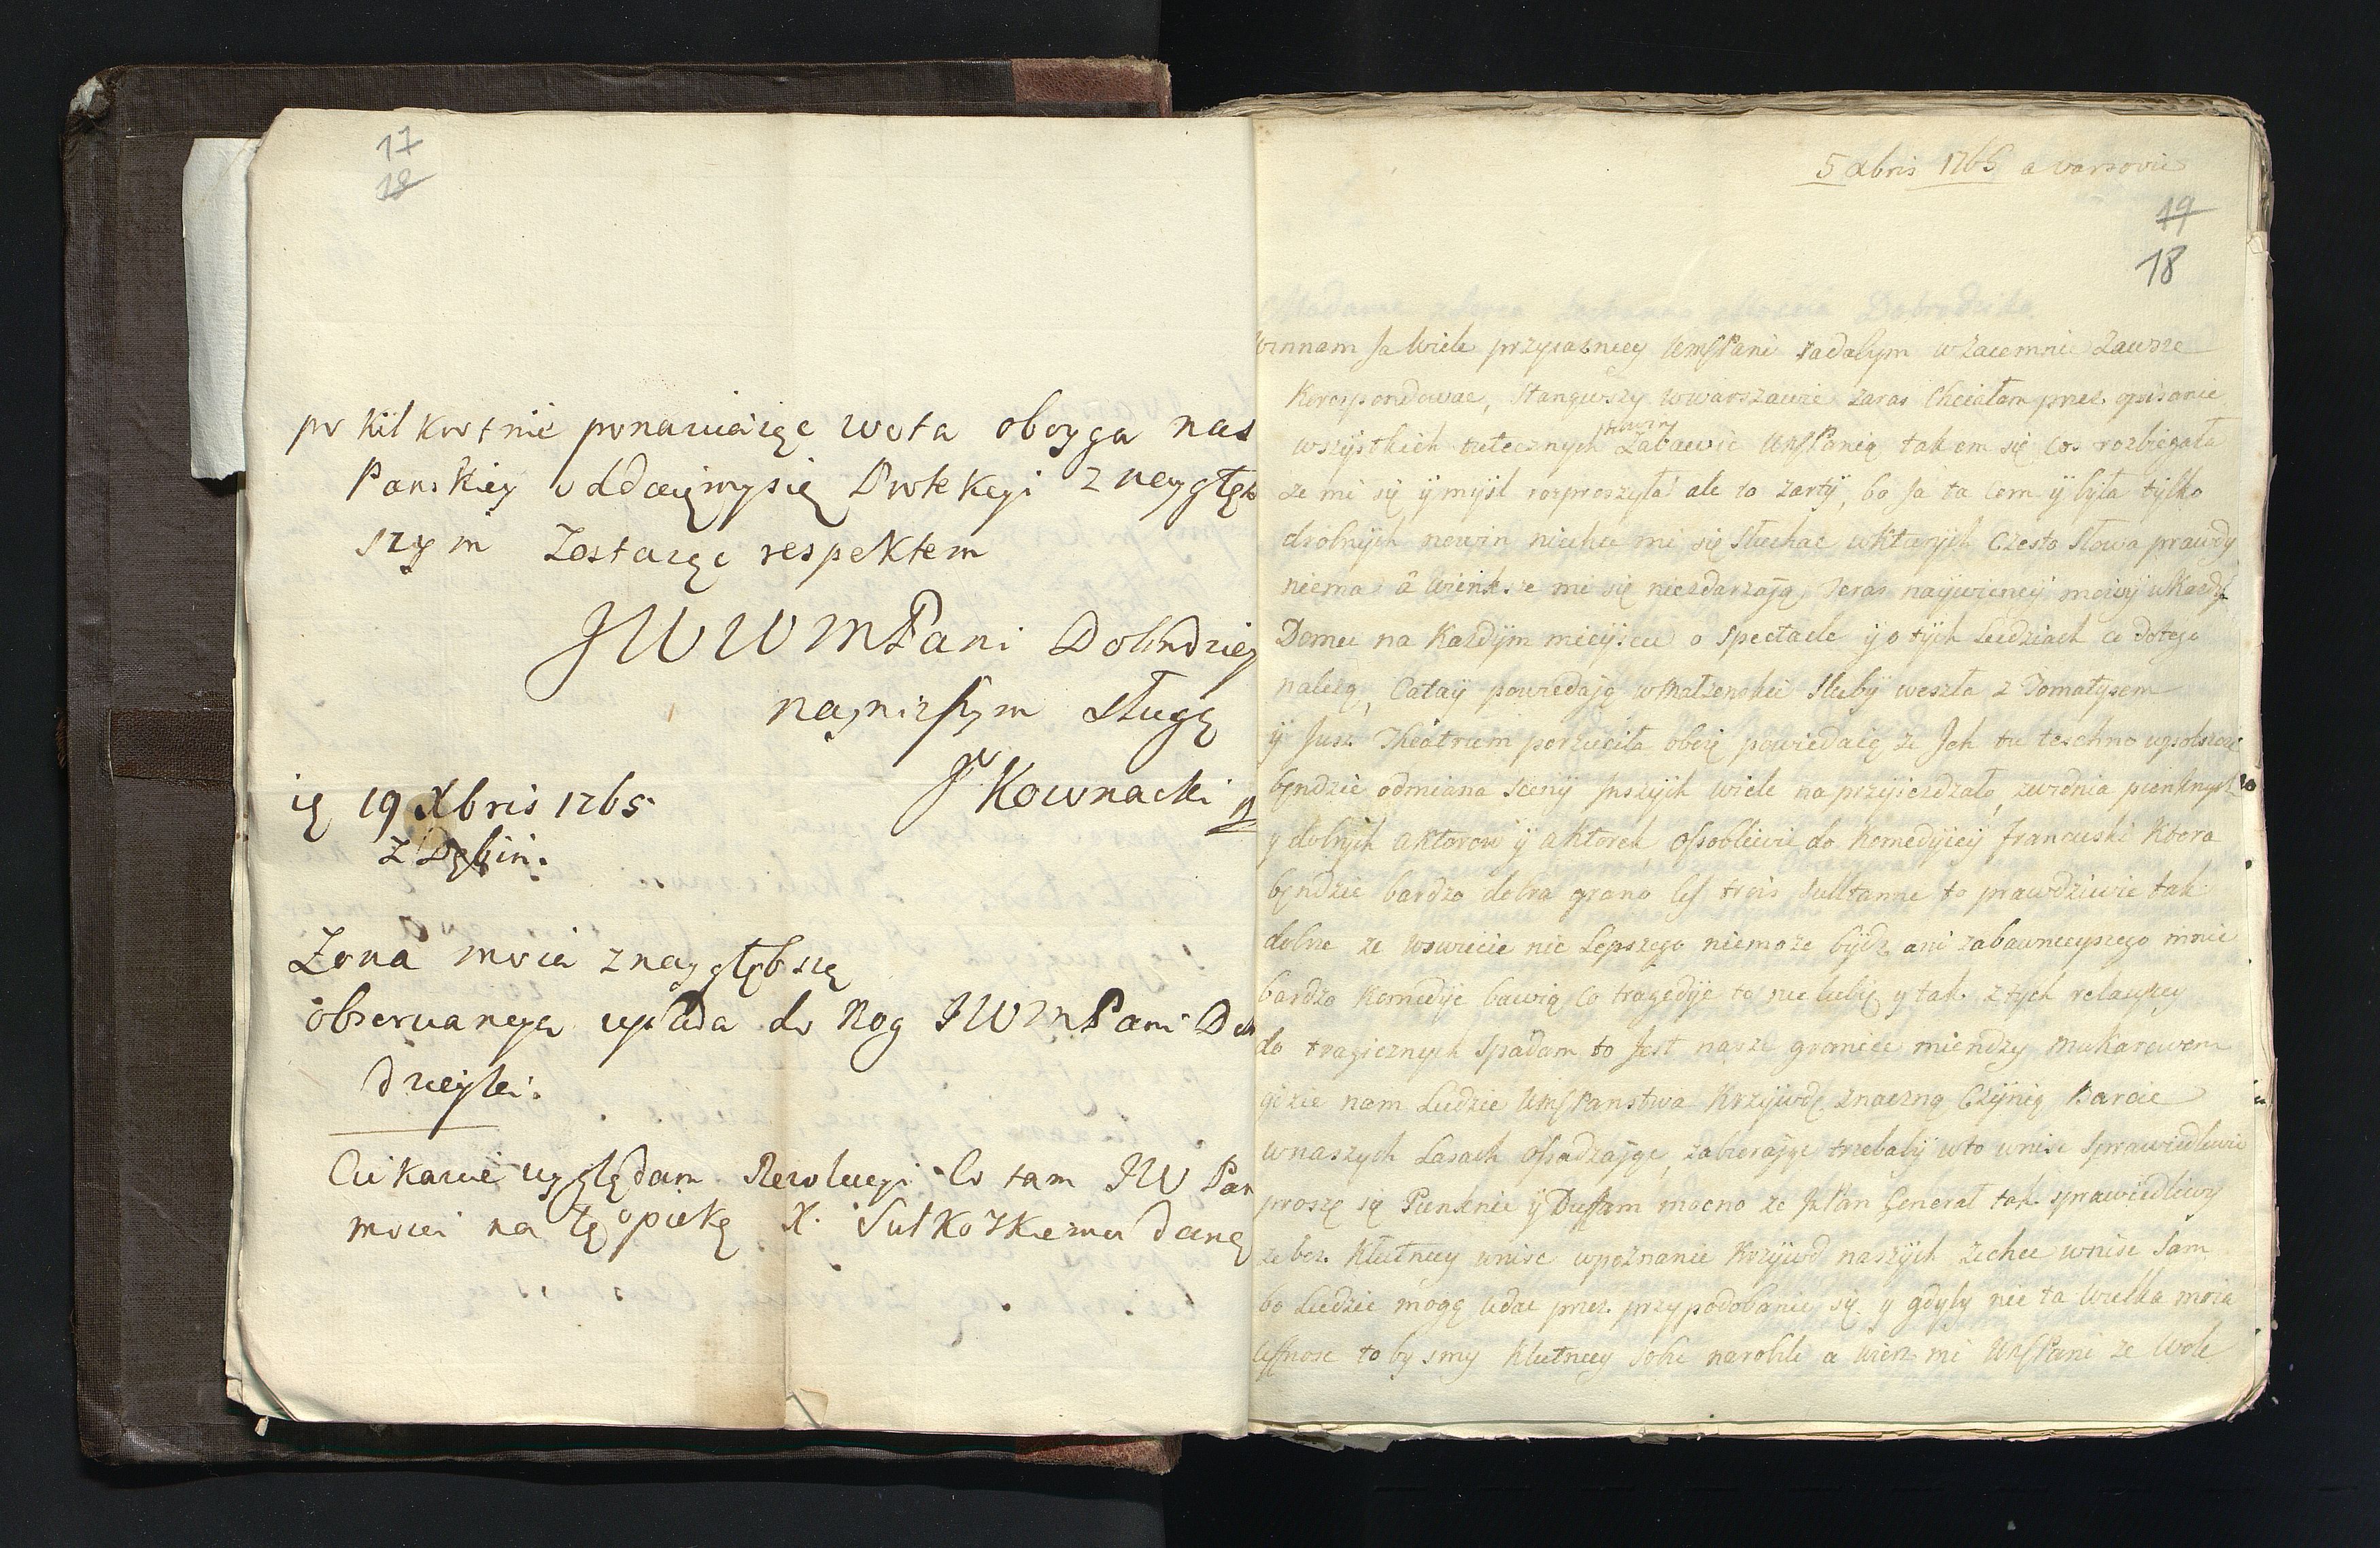 17
18
po kil kroťnie ponawiaiąc wota oboyga nas
Panskiey oddaięmysię Protekcyi z nayglęb
szym Zostaięc respektem
JWWMPani Dobrodziey
nayniższym sługą
JKownacki
19 Xbris 1765
z Dębin.
Zona moia znayglębszą
obserwancyą upada do Nog JWMPani Dob
dzieyki.
Ciekawie wyglądam Rezolucyi Co tam JW Pan
mowi na tę opiekę X. Sułkoskiemu daną
5 xbris 1765 a varsovie
19
18
Winnam Ja Wiele przyiazniey WMSPani zadałym wzaiemnie Zawsze
Korespondowac, Stanąwszy wWarszawie zaras Chciałam przez opisanie
wszystkich tutecznych nowiny Zabawic WMSPanią tak em się cos rozbiegała
ze mi się ÿ mysl rozproszyła ale to zartÿ, bo Ja ta Com ÿ była tylko
drobnych nowin niechce mi się Słuchac wktorych Często Słowa prawdy
niema a Wienksze mi się niezdarzają, Teras naywiencÿ mowiÿ wKazdÿ
Domu na Kazdym mieyscu o spectacle ÿ o tych Ludziach co dotego
nalezą, Cataÿ powiedają wMałzenskie Sluby weszła z Tomatysem
ÿ Jusz Theatrum porzuciła obcię powiedaię ze Jak tu teschno
bęndzie odmiana Scenÿ Inszych wiele naprzyiezdzało, zwidnia pienknych
y dobrych aktorow ÿ aktorek, Osobliwie do Komedyiey francuski Ktora
bęndzie bardzo dobra grano les trois Sulltanne to prawdziwie tak
dobre ze wswiecie nic Lepszego niemoze bydz, ani zabawnieyszego mnie
bardzo Komedye bawią Co tragedye to nie lubię y tak z tych relacyey
do tragicznych Spadam to Jest nasze granice miendzy Makarowem
gdzie nam Ludzie WMSPanstwa Krzywdę znaczną Czynią Barcie
wnaszych Lasach Osadzając, zabieraiąc trzebabÿ wto wnisc Sprawiedliwie
proszę się Pienknie ÿ Duffam mocno ze JPan General tak sprawiedliwy
zebez Kłutniey wnisc wpoznanie Krzywd naszych zechce wnisc Sam
bo Ludzie mogą Udac przez przypodobanie się y gdyby nie ta Wielka moia
Uffnosc to by smy Kłutniey Sobie narobili a wierz mi WMSPani ze Wole